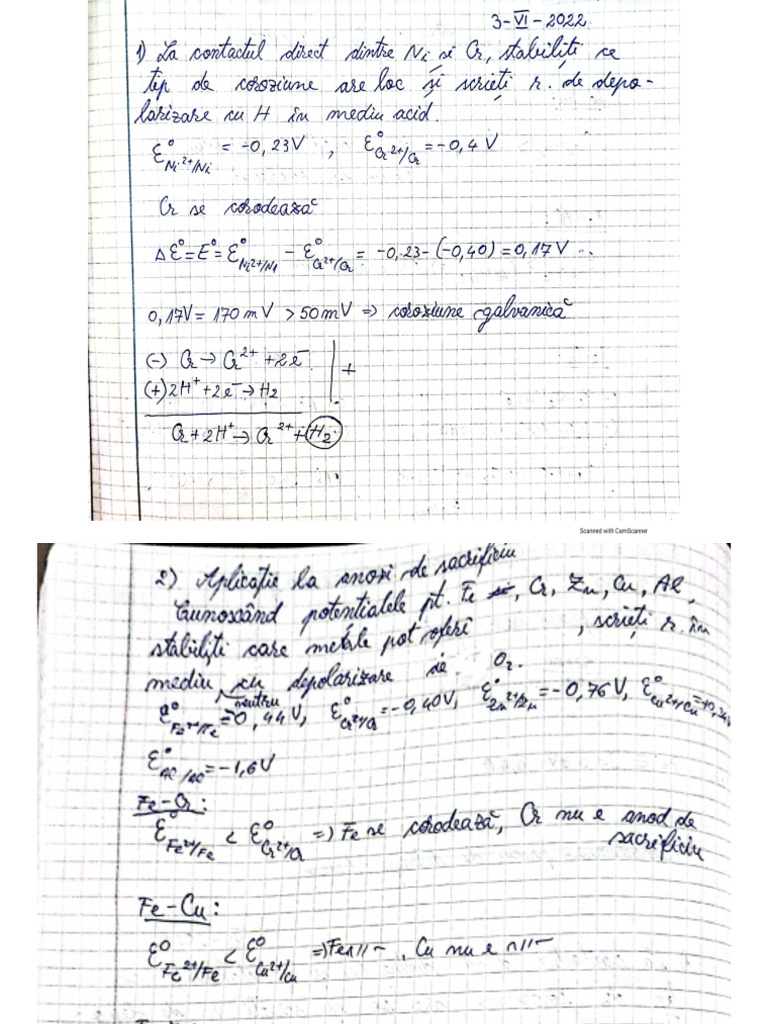 3-VI-2022
1) La contactul direct dintre Ni si Cr, stabiliți ce
tip de coroziune are loc și scrieți r. de depo-
larizare cu H în mediu acid.
ε⁰Ni²⁺/Ni = -0,23V , ε⁰Cr²⁺/Cr = -0,4 V
Cr se corodează
Δε⁰=E⁰=ε⁰Ni²⁺/Ni - ε⁰Cr²⁺/Cr = -0,23-(-0,40)=0,17V
0,17V = 170mV > 50mV => coroziune galvanică
(-) Cr → Cr²⁺ + 2e⁻
(+) 2H⁺ + 2e⁻ → H₂ | +
Cr + 2H⁺ → Cr²⁺ + H₂
Scanned with CamScanner
2) Aplicație la anozi de sacrificiu
Cunoscând potențialele pt. Fe, Cr, Zn, Cu, Al,
stabiliți care metale pot oferi , scrieți r. în
mediu neutru cu depolarizare de O₂.
ε⁰Fe²⁺/Fe = -0,44V, ε⁰Cr²⁺/Cr = -0,40V, ε⁰Zn²⁺/Zn = -0,76 V, ε⁰Cu²⁺/Cu = +0,34V
ε⁰Al/Al = -1,6V
Fe-Cr:
ε⁰Fe²⁺/Fe < ε⁰Cr²⁺/Cr => Fe se corodează, Cr nu e anod de
sacrificiu
Fe-Cu:
ε⁰Fe²⁺/Fe < ε⁰Cu²⁺/Cu => Fe —//— , Cu nu e —//—